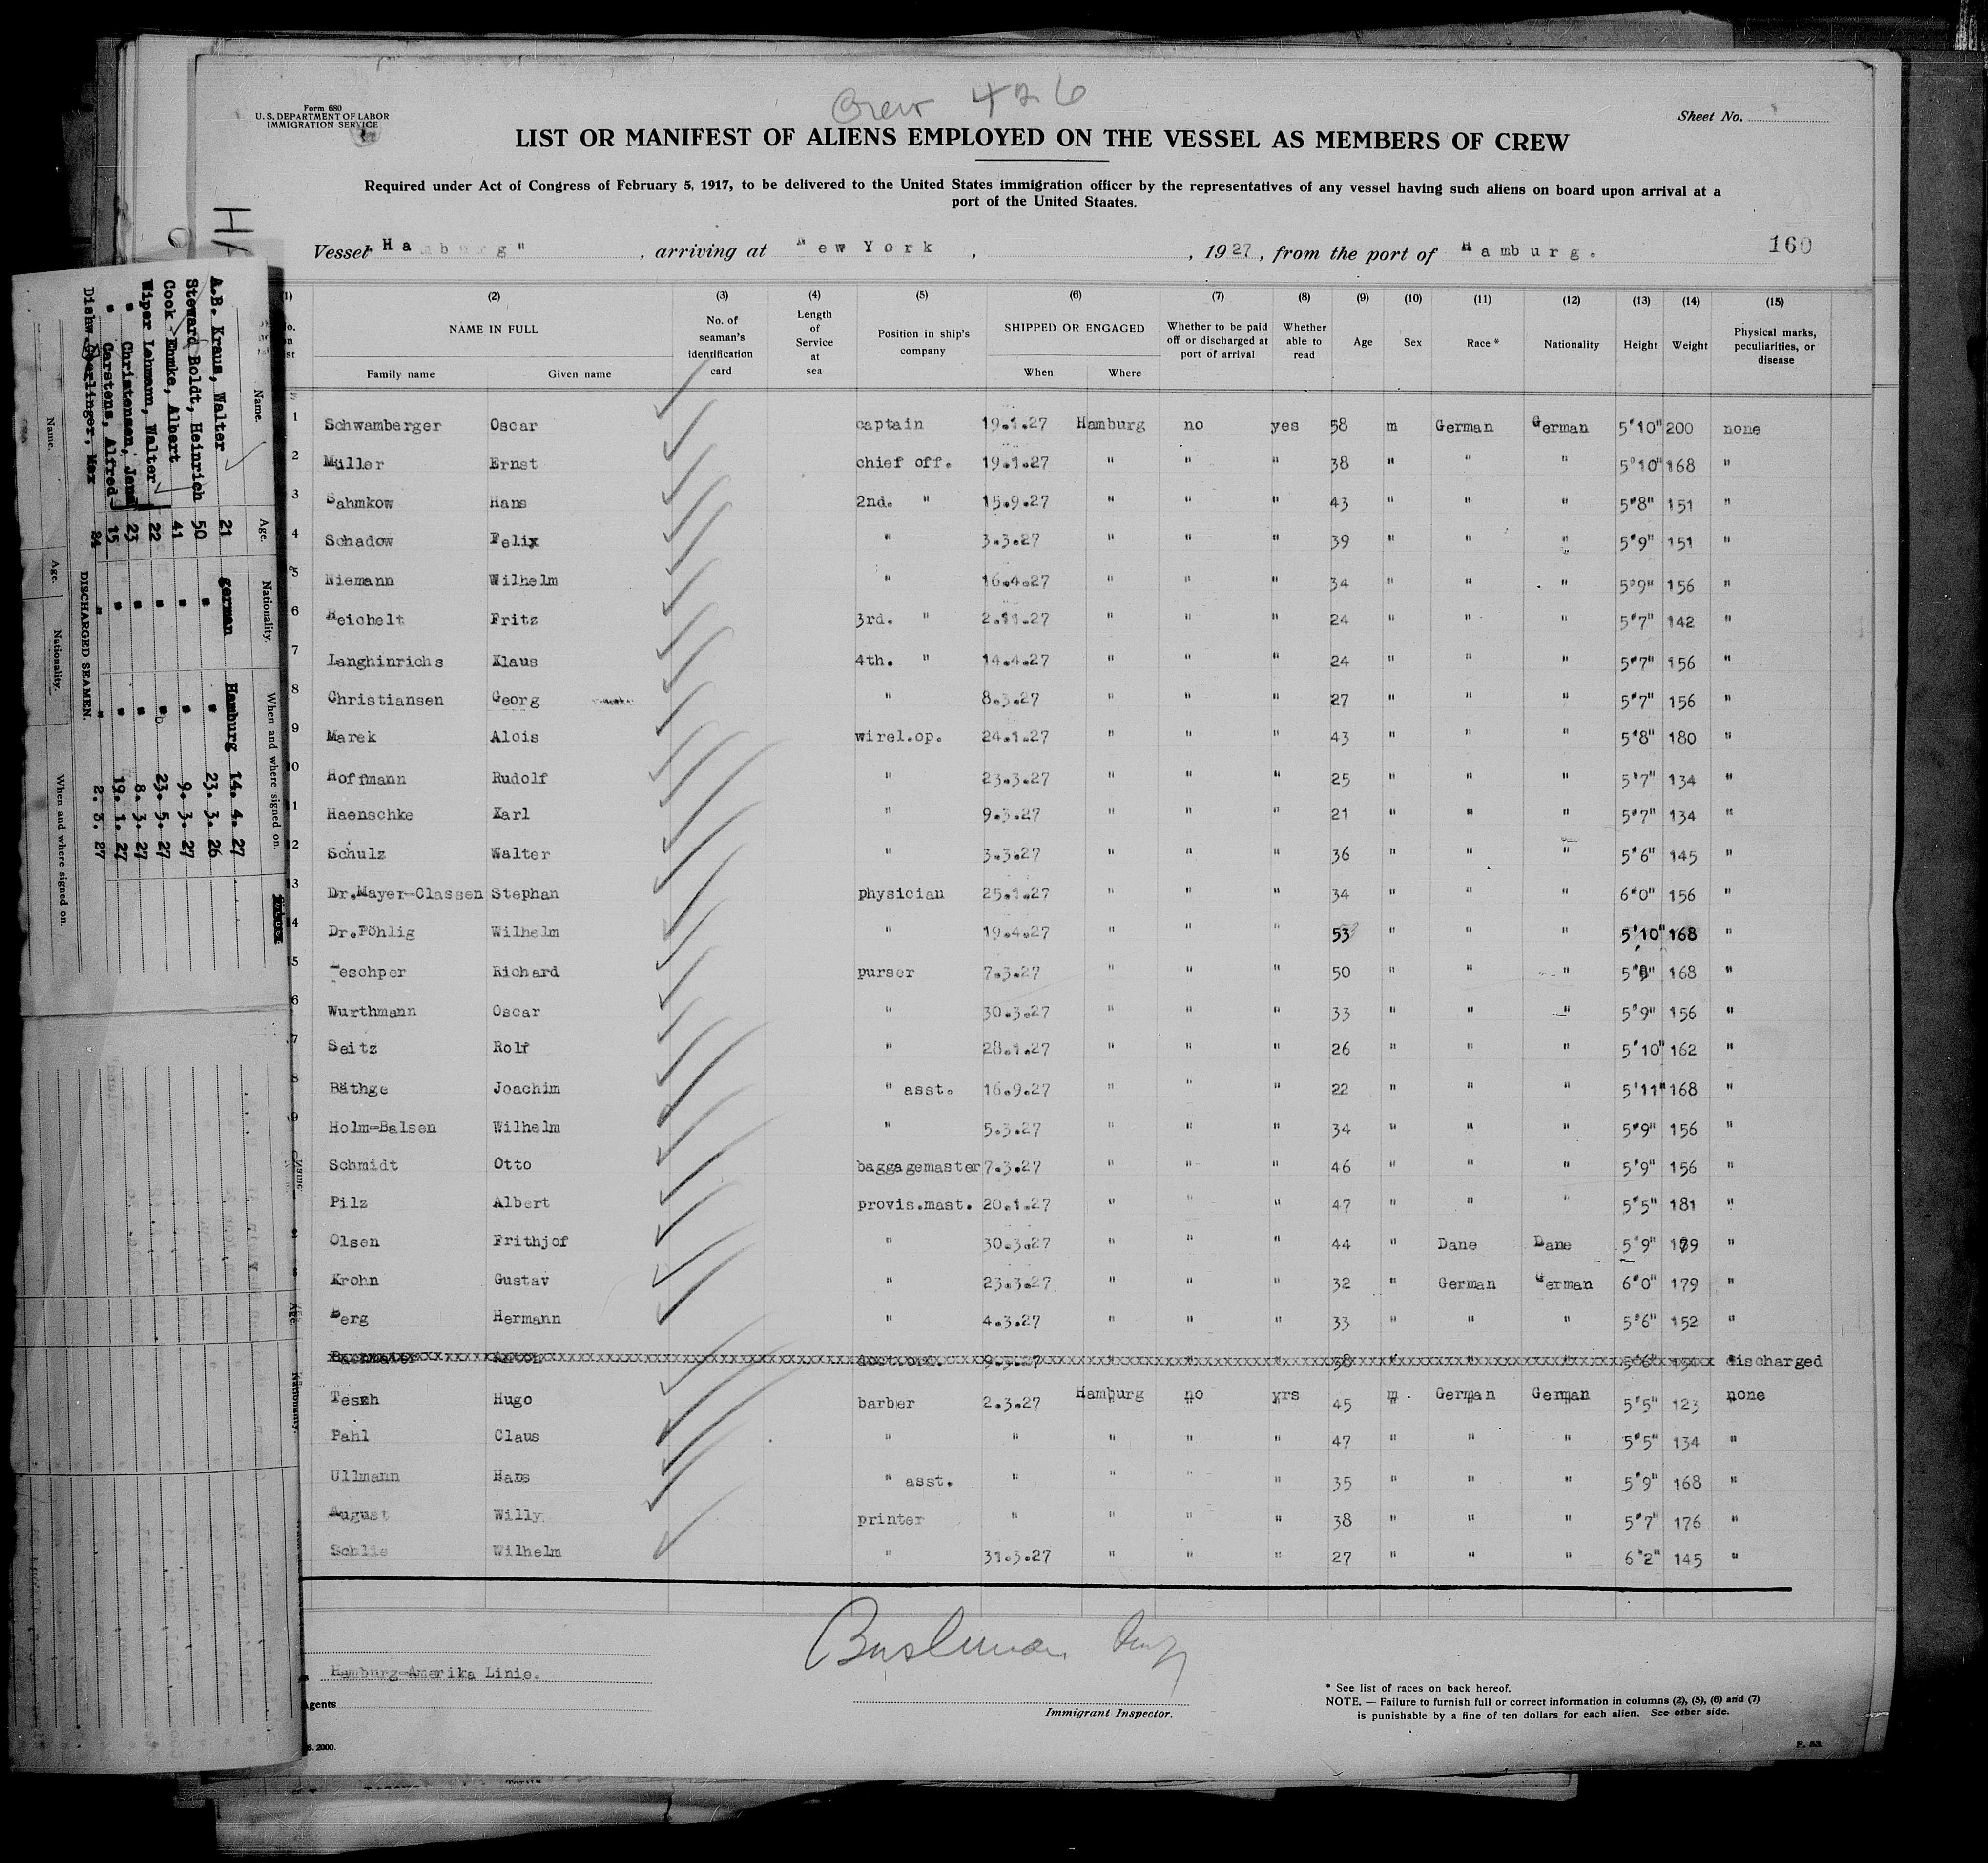 Crew 426
Form 680
U. S. DEPARTMENT OF LABOR
IMMIGRATION SERVICE
Sheet No.
LIST OR MANIFEST OF ALIENS EMPLOYED ON THE VESSEL AS MEMBERS OF CREW
Required under Act of Congress of February 5, 1917, to be delivered to the United States immigration officer by the representatives of any vessel having such aliens on board upon arrival at a
port of the United Staates.
Vessel "Hamburg" , arriving at New York , , 1927, from the port of Hamburg. 160
(1) (2) (3) (4) (5) (6) (7) (8) (9) (10) (11) (12) (13) (14) (15)
NAME IN FULL No. of seaman's identification card Length of Service at sea Position in ship's company SHIPPED OR ENGAGED Whether to be paid off or discharged at port of arrival Whether able to read Age Sex Race * Nationality Height Weight Physical marks, peculiarities, or disease
Family name Given name When Where
1 Schwamberger Oscar captain 19.1.27 Hamburg no yes 58 m German German 5'10" 200 none
2 Müller Ernst chief off. 19.1.27 " " " 38 " " " 5'10" 168 "
3 Sahmkow Hans 2nd. " 15.9.27 " " " 43 " " " 5'8" 151 "
4 Schadow Felix " 3.3.27 " " " 39 " " " 5'9" 151 "
5 Niemann Wilhelm " 16.4.27 " " " 34 " " " 5'9" 156 "
6 Reichelt Fritz 3rd. " 2.11.27 " " " 24 " " " 5'7" 142 "
7 Langhinrichs Klaus 4th. " 14.4.27 " " " 24 " " " 5'7" 156 "
8 Christiansen Georg " 8.3.27 " " " 27 " " " 5'7" 156 "
9 Marek Alois wirel.op. 24.1.27 " " " 43 " " " 5'8" 180 "
10 Hoffmann Rudolf " 23.3.27 " " " 25 " " " 5'7" 134 "
1 Haenschke Karl " 9.3.27 " " " 21 " " " 5'7" 134 "
2 Schulz Walter " 3.3.27 " " " 36 " " " 5'6" 145 "
3 Dr.Mayer-Classen Stephan physician 25.1.27 " " " 34 " " " 6'0" 156 "
4 Dr.Pöhlig Wilhelm " 19.4.27 " " " 53 " " " 5'10" 168 "
5 Teschper Richard purser 7.3.27 " " " 50 " " " 168 "
6 Wurthmann Oscar " 30.3.27 " " " 33 " " " 5'9" 156 "
7 Seitz Rolf " 28.1.27 " " " 26 " " " 5'10" 162 "
8 Bäthge Joachim " asst. 16.9.27 " " " 22 " " " 5'11" 168 "
9 Holm-Balsen Wilhelm " 5.3.27 " " " 34 " " " 5'9" 156 "
Schmidt Otto baggagemaster 7.3.27 " " " 46 " " " 5'9" 156 "
Pilz Albert provis.mast. 20.1.27 " " " 47 " " " 5'5" 181 "
Olsen Frithjof " 30.3.27 " " " 44 " Dane Dane 5'9" 179 "
Krohn Gustav " 23.3.27 " " " 32 " German German 6'0" 179 "
Berg Hermann " 4.3.27 " " " 33 " " " 5'6" 152 "
Anton 9.3.27 " " " 38 " " " 5'6" 134 discharged
Tesch Hugo barber 2.3.27 Hamburg no yrs 45 m German German 5'5" 123 none
Pahl Claus " " " " " 47 " " " 5'5" 134 "
Ullmann Hans " asst. " " " " 35 " " " 5'9" 168 "
August Willy printer " " " " 38 " " " 5'7" 176 "
Schlie Wilhelm " 31.3.27 " " " 27 " " " 6'2" 145 "
Hamburg-Amerika Linie.
Agents
Immigrant Inspector.
* See list of races on back hereof.
NOTE. — Failure to furnish full or correct information in columns (2), (5), (6) and (7)
is punishable by a fine of ten dollars for each alien. See other side.
F. 83.
Name. Age. Nationality. When and where signed on.
A.B. Kraus, Walter 21 german Hamburg 14. 4. 27
Steward Boldt, Heinrich 50 " " 23. 3. 26
Cook Ehmke, Albert 41 " " 9. 3. 27
Wiper Lehmann, Walter 22 " " 23. 5. 27
" Christensen, Jens 23 " " 8. 3. 27
" Carstens, Alfred 15 " " 19. 1. 27
Dishw. Oerlinger, Max 24 " " 2. 3. 27
DISCHARGED SEAMEN.
Name. Age. Nationality. When and where signed on.